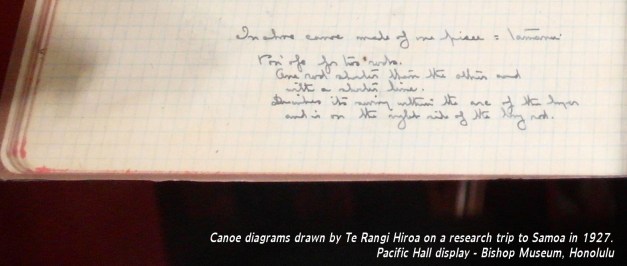 In shore canoe made of one piece =
for two rods.
One rod shorter than the other and
with a shorter line.
its swing within the arc of the
and is on the right side of the rod.
Canoe diagrams drawn by Te Rangi Hiroa on a research trip to Samoa in 1927.
Pacific Hall display - Bishop Museum, Honolulu